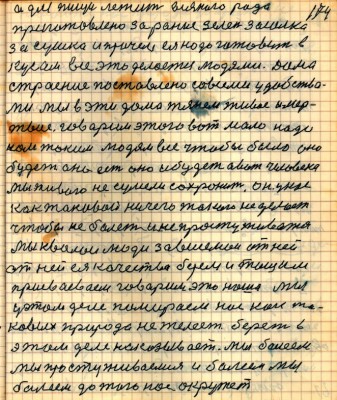 174
а для пищи летит всякого рода
приготовлено заранее зелен засолка
засушка и причем ея надо готовить в
кусам все это делается людями. Дома
строение поставлено совсеми удобства-
ми мы в эти дома тянем живое и мер-
твое. говорим этого вот мало надо
нам таким людям все чтобы было оно
будет оно ест оно и будет а вот человека
мы живого не сумели сохранит, он у нас
как таковой ничего такого не делает
чтобы не болет и не простуживатся
мы люди зависемои от ней
от ней ея качества берем и тащим
присваеваем говорим это наша мы
в этом деле помираем нас как та-
ковых природа не жалеет берет в
этом деле наказывает. мы болеем
мы простуживаемся и болеем мы
болеем до того нас окружет